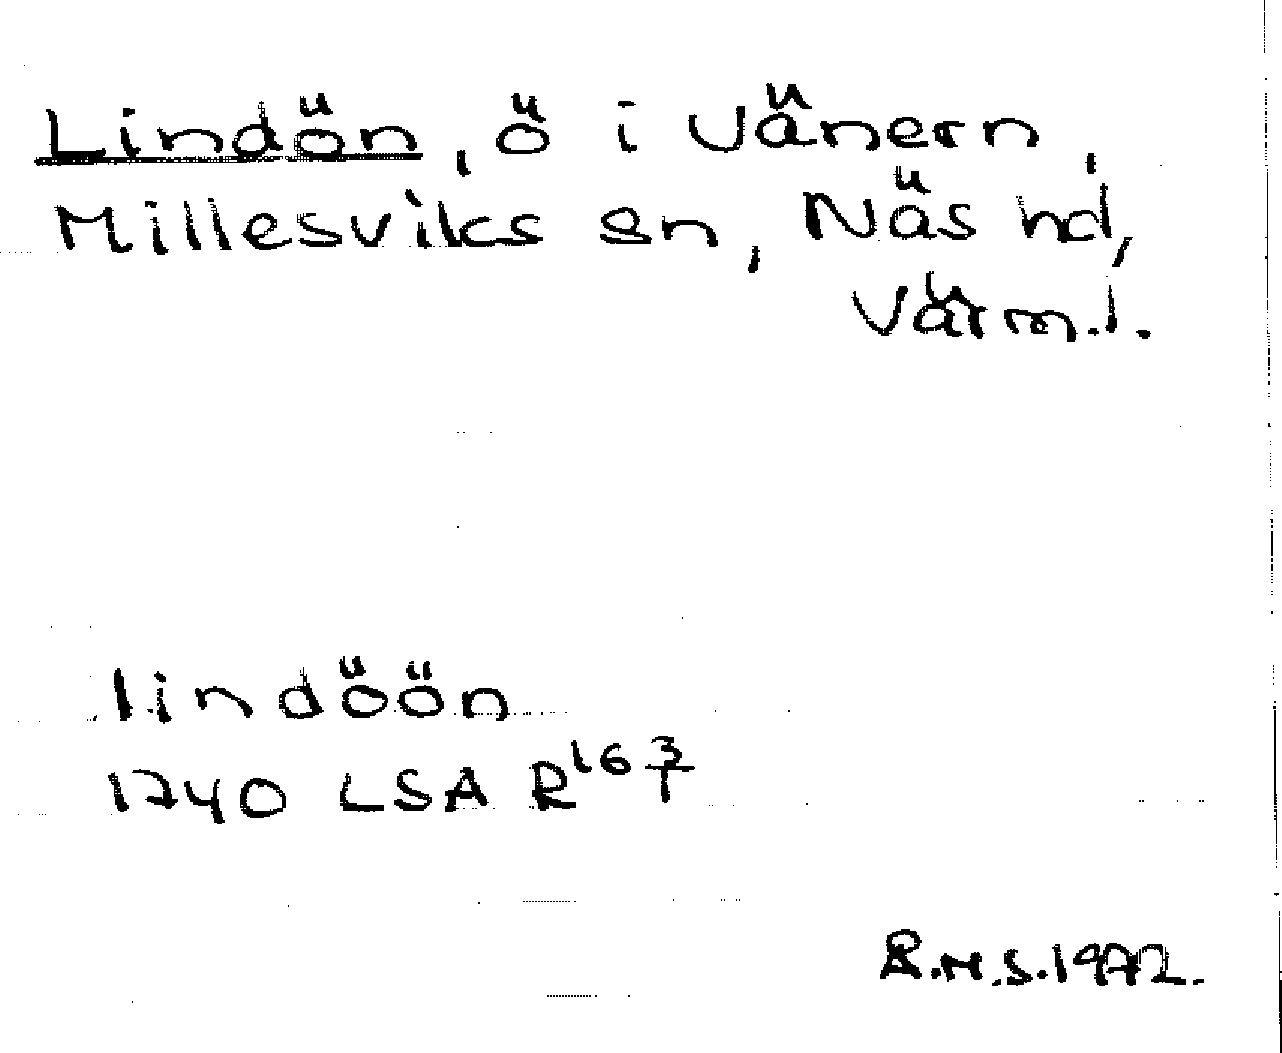 Lindön, ö i Vänern,
Millesviks sn, Näs hd,
Värml.
lindöön
1740 LSA R16 3/1
R.M.S. 1972.